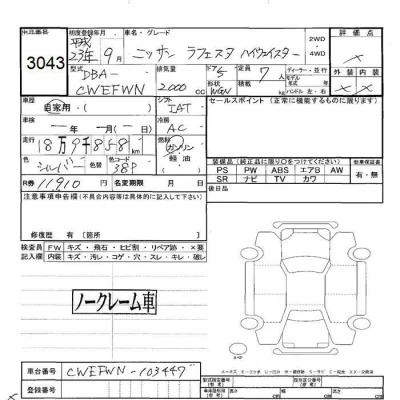 出品番号 初度登録年月 車名・グレード 2WD 評価点
3043 平成 23年 9月 ニッサン ラフェスタ ハイウェイスター 4WD ×
型式 排気量 ドア 定員 ディーラー・並行 外装 内装
DBA- CWEFWN 2000 cc 5 形状 WGN 7人 積載量 kg モデル年式 年 ハンドル 左・右 × ×
車歴 シフト セールスポイント (正常に機能するものに限ります)
自家用・( ) IAT
車検 冷房
— 年 — 月 (— 日) AC
走行 燃料
18万9千858 km ガソリン
色 シルバー 色替 色コード 38P 軽油
装備品 (純正品に限り○をつけてください)
PS PW ABS エアB AW 有・無
R券 11910 円 名変期限 月 日 SR ナビ TV カワ
注意事項申告欄(不具合内容等は具体的に記入して下さい) 後日品
修復歴 有 〔箇所 〕
検査員記入欄 FW キズ・飛石・ヒビ割・リペア跡・×要
内装 キズ・汚レ・コゲ・穴・スレ・キレ・破レ
ノークレーム車
スペア
車台番号 CWEFWN-103447
登録番号
型式指定番号 類別区分番号
長さ 幅 高さ